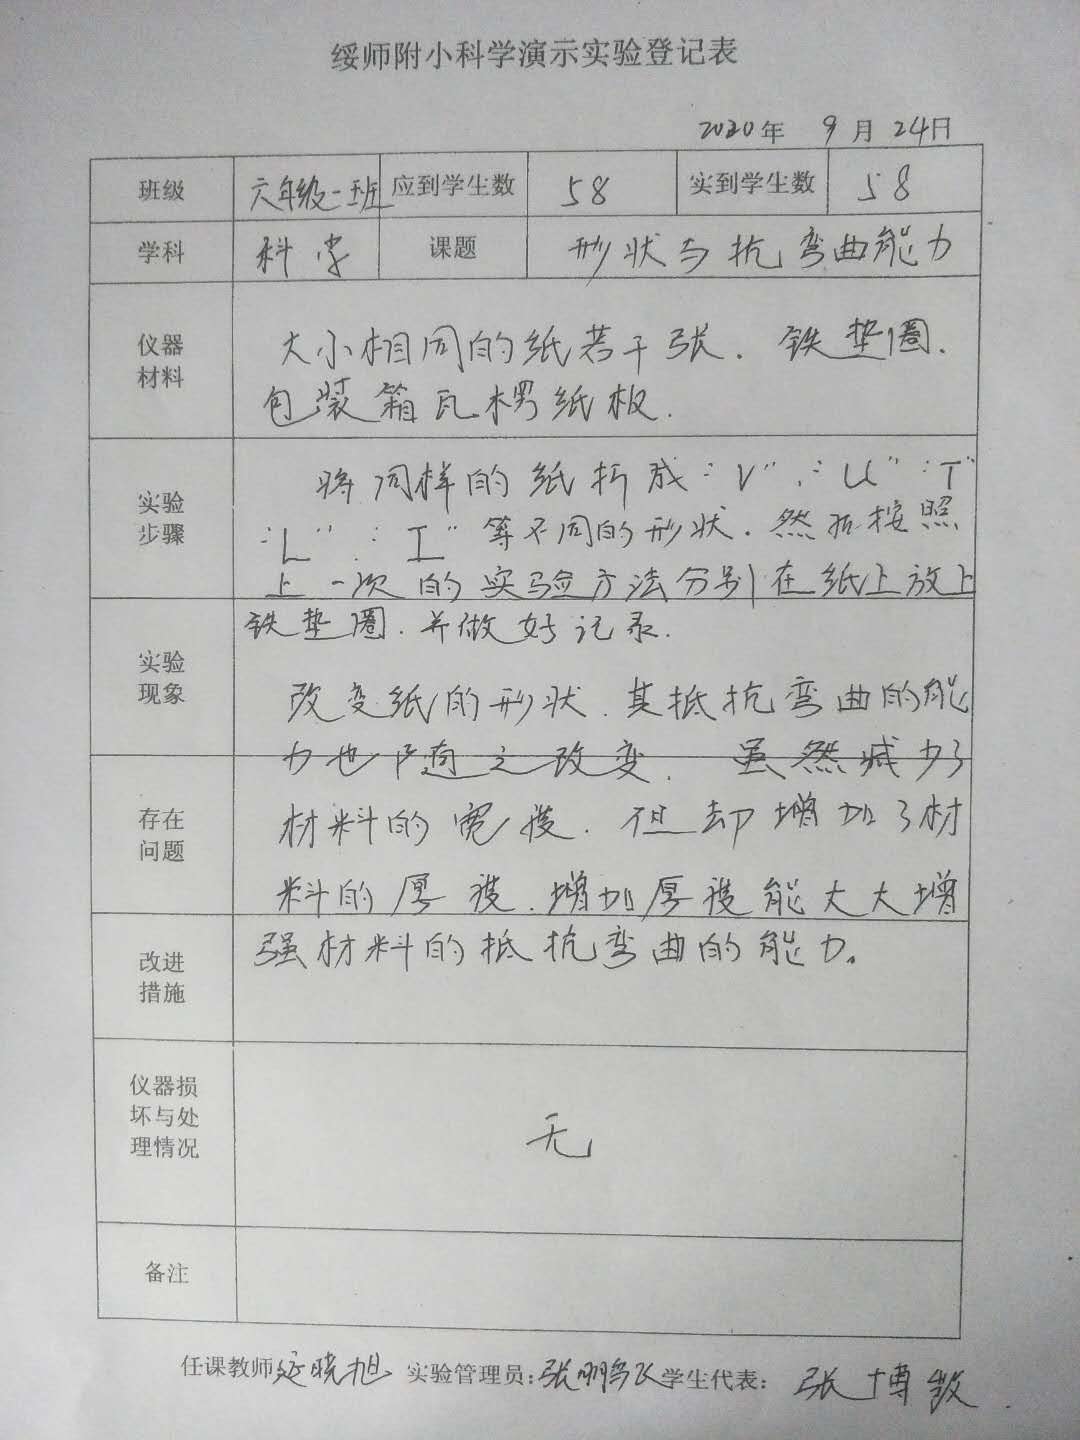 绥师附小科学演示实验登记表
2020年 9月24日
班级 六年级一班 应到学生数 58 实到学生数 58
学科 科学 课题 形状与抗弯曲能力
仪器
材料
大小相同的纸若干张. 铁垫圈.
包装箱瓦楞纸板.
实验
步骤
将同样的纸折成"V"."U" "T"
"L". "工"等不同的形状. 然后按照
上一次的实验方法分别在纸上放上
铁垫圈.并做好记录.
实验
现象
改变纸的形状.其抵抗弯曲的能
力也随之改变. 虽然减少了
存在
问题
材料的宽度.但却增加了材
料的厚度.增加厚度能大大增
改进
措施
强材料的抵抗弯曲的能力。
仪器损
坏与处
理情况
无
备注
任课教师 延晓旭 实验管理员:张鹏飞 学生代表: 张博